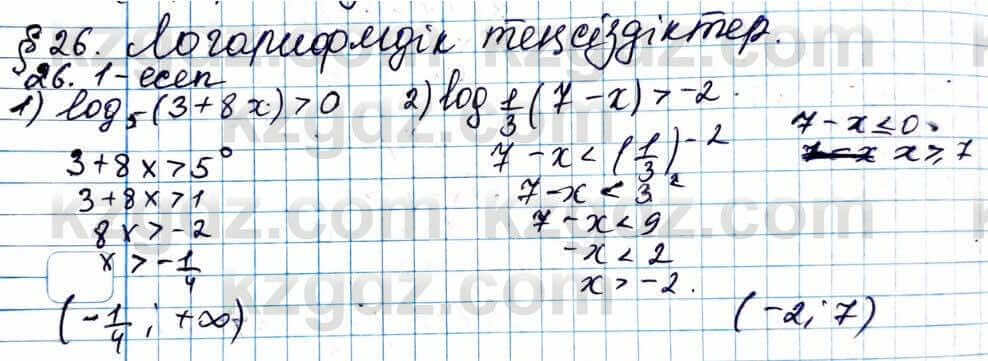 §26. Логарифмдік теңсіздіктер.
26. 1-есеп
1) log₅(3+8x)>0
3+8x>5⁰
3+8x>1
8x>-2
x>-1/4
(-1/4; +∞)
2) log 1/3 (7-x)>-2.
7-x<(1/3)⁻²
7-x<3²
7-x<9
-x<2
x>-2.
7-x≤0.
x≥7
(-2; 7)
kzgdz.com
kzgdz.com
kzgdz.com